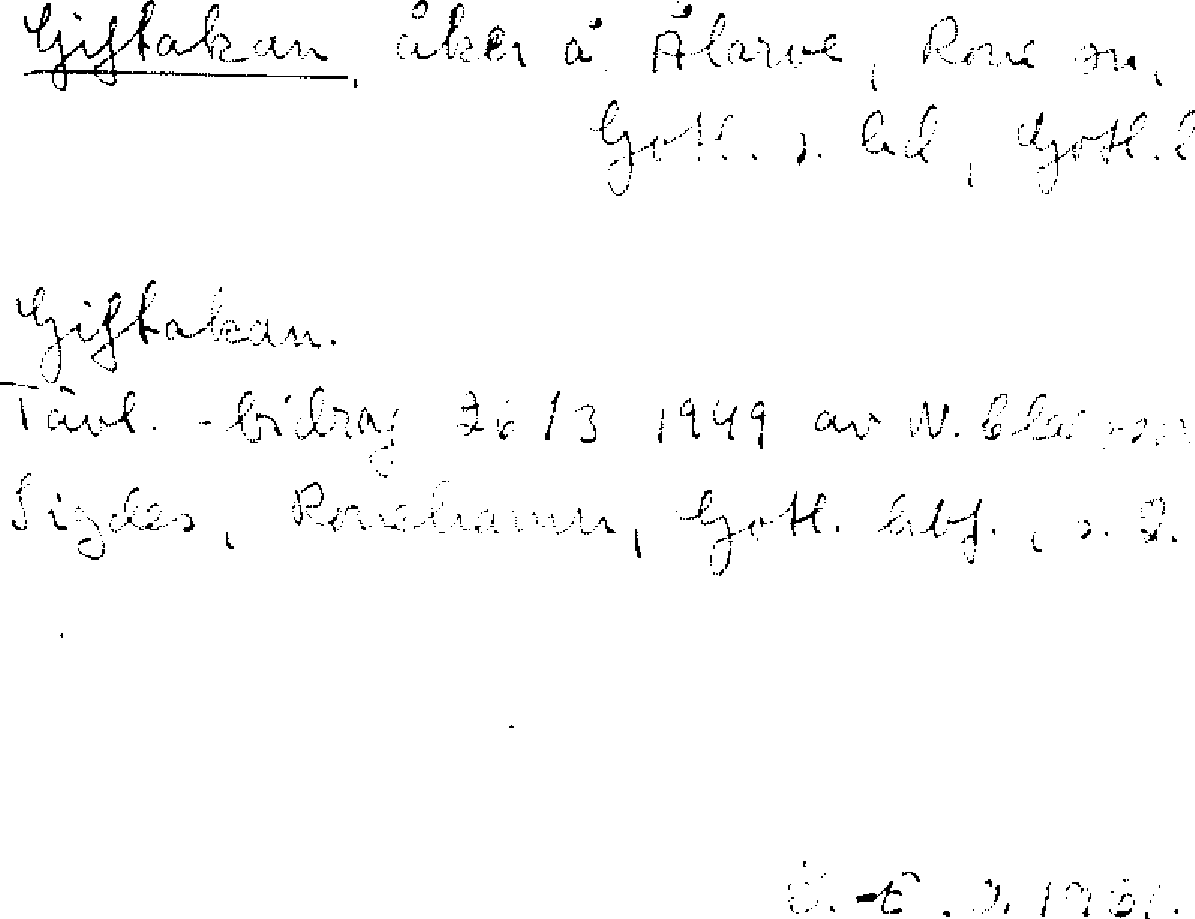 Giftakan, åker å Ålarve, Rone sn,
Gotl. s. hd, Gotl. l
Giftakan.
Tävl.-bidrag 26/3 1949 av N. Claesson
Sigdes, Ronehamn, Gotl. hbf., s. 2.